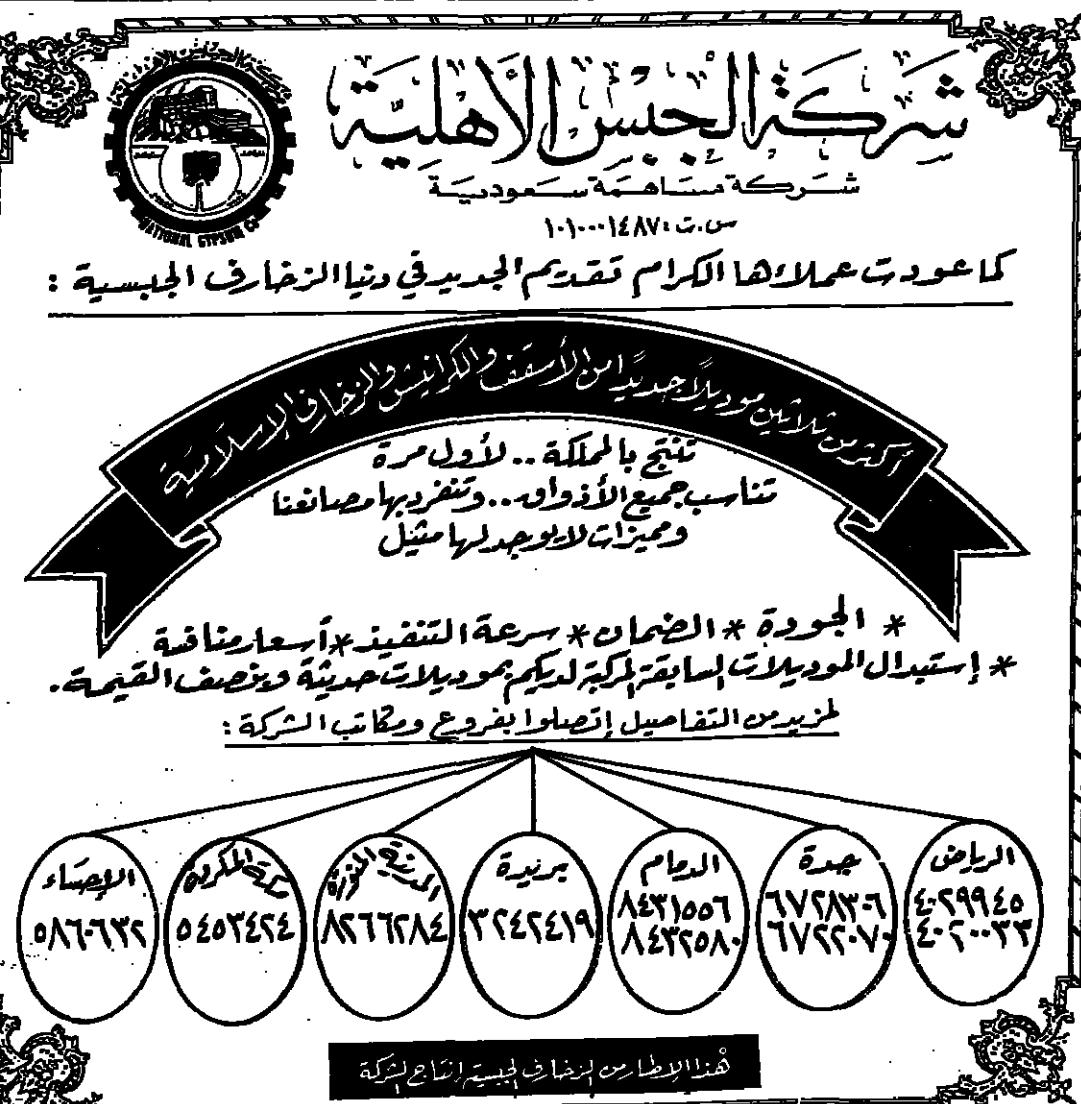 شركة الجبس الأهلية
شركة مساهمة سعودية
س.ت: ١٠١٠٠٠١٤٨٧
NATIONAL GYPSUM CO
كما عودت عملاءها الكرام تقديم الجديد في دنيا الزخارف الجبسية :
أكثر من ثلاثين موديلاً جديداً من الأسقف والكرانيش والزخارف الإسلامية
تنتج بالمملكة .. لأول مرة
تناسب جميع الأذواق .. وتنفرد بها مصانعنا
ومميزات لا يوجد لها مثيل
* الجودة * الضمان * سرعة التنفيذ * أسعار منافسة
* إستبدال الموديلات السابقة المركبة لديكم بموديلات حديثة وبنصف القيمة .
لمزيد من التفاصيل إتصلوا بفروع ومكاتب الشركة :
الرياض
٤٠٢٩٩٤٥
٤٠٢٠٠٣٣
جدة
٦٧٢٨٣٠٦
٦٧٢٢٠٧٠
الدمام
٨٤٣١٥٥٦
٨٤٣٢٥٨٠
بريدة
٣٢٤٢٤١٩
المدينة المنورة
٨٢٦٦٢٨٤
مكة المكرمة
٥٤٥٣٤٢٤
الإحساء
٥٨٦٠٦٣٢
هذا الإطار من الزخارف الجبسية إنتاج الشركة